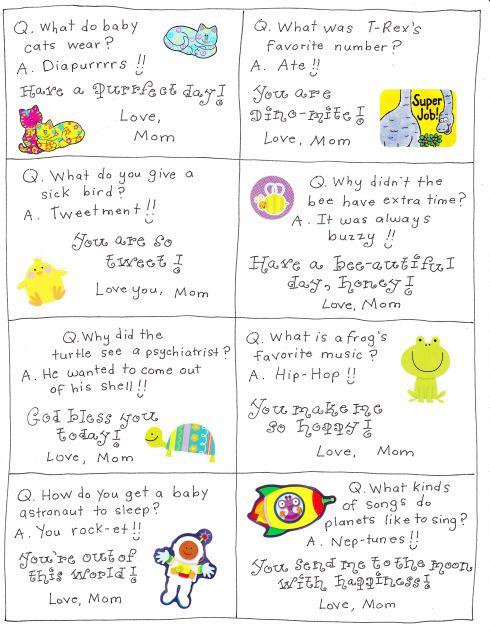 Q. What do baby
cats wear?
A. Diapurrrrs !!
Have a purrfect day!
Love,
Mom
Q. What was T-Rex's
favorite number?
A. Ate !!
You are
Dino-mite!
Love, Mom
Super
Job!
Q. What do you give a
sick bird?
A. Tweetment !!
You are so
tweet!
Love you, Mom
Q. Why didn't the
bee have extra time?
A. It was always
buzzy !!
Have a bee-autiful
day, honey!
Love, Mom
Q. Why did the
turtle see a psychiatrist?
A. He wanted to come out
of his shell !!
God bless you
today!
Love, Mom
Q. What is a frog's
favorite music?
A. Hip-Hop !!
You make me
so hoppy!
Love, Mom
Q. How do you get a baby
astronaut to sleep?
A. You rock-et !!
You're out of
this world!
Love, Mom
Q. What kinds
of songs do
planets like to sing?
A. Nep-tunes !!
You send me to the moon
with happiness!
Love, Mom